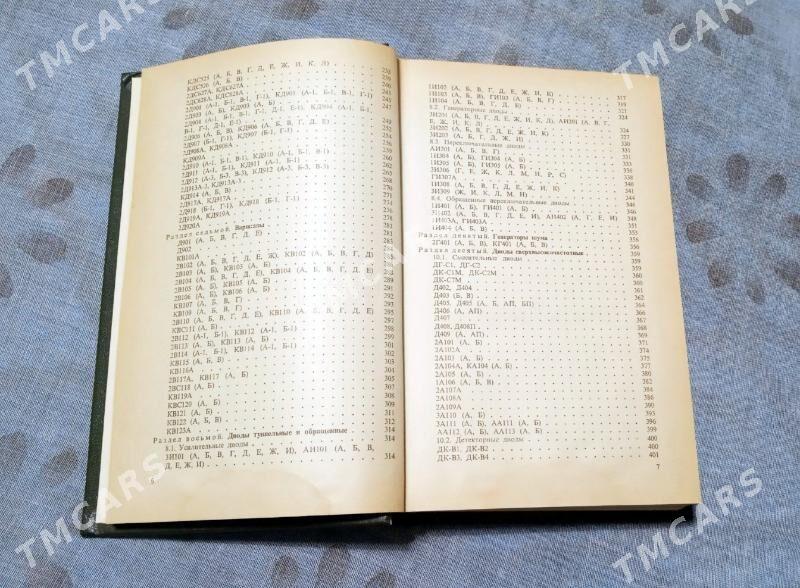 КДС525 (А, Б, В, Г, Д, Е, Ж, И, К, Л) 238
КДС526 (А, Б, В) 239
2ДС627А, КДС627А 240
2ДС628А, КДС628А 241
2Д904 (А-1, Б-1, В-1, Г-1), КД901 (А-1, Б-1, В-1, Г-1) 243
2Д903 (А, Б), КД903 (А, Б) 245
2Д904 (А-1, Б-1, В-1, Г-1, Д-1, Е-1), КД904 (А-1, Б-1,
В-1, Г-1, Д-1, Е-1) 247
2Д906 (А, Б, В), КД906 (А, Б, В, Г, Д, Е) 249
2Д907 (Б-1, Г-1), КД907 (Б-1, Г-1)
2Д908А, КД908А
КД909А
2Д910 (А-1, Б-1, В-1), КД910 (А-1, Б-1, В-1)
2Д911 (А-1, Б-1), КД911 (А-1, Б-1)
2Д912 (А-3, Б-3, В-3), КД912 (А-3, Б-3, В-3)
2Д913А-3, КД913А-3
КД914 (А, Б, В)
2Д917А, КД917А
2Д918 (Б-1, Г-1), КД918 (Б-1, Г-1)
2Д919А, КД919А
2Д920А
Раздел седьмой. Варикапы 281
Д901 (А, Б, В, Г, Д, Е) 281
Д902 283
КВ101А
2В102 (А, Б, В, Г, Д, Е, Ж), КВ102 (А, Б, В, Г, Д)
2В103 (А, Б), КВ103 (А, Б)
2В104 (А, Б, В, Г, Д, Е), КВ104 (А, Б, В, Г, Д, Е)
2В105 (А, Б), КВ105 (А, Б)
2В106 (А, Б), КВ106 (А, Б)
КВ107 (А, Б, В, Г)
КВ109 (А, Б, В, Г)
2В110 (А, Б, В, Г, Д, Е), КВ110 (А, Б, В, Г, Д, Е)
КВС111 (А, Б) 298
2В112 (А-1, Б-1), КВ112 (А-1, Б-1) 299
2В113 (А, Б), КВ113 (А, Б) 301
2В114 (А-1, Б-1), КВ114 (А-1, Б-1) 302
КВ115 (А, Б, В) 303
КВ116А 304
2В117А, КВ117 (А, Б) 305
2ВС118 (А, Б) 307
КВ119А 308
КВС120 (А, Б) 309
КВ121 (А, Б) 311
КВ122 (А, Б, В) 312
КВ123А 313
Раздел восьмой. Диоды туннельные и обращенные 314
8.1. Усилительные диоды 314
3И101 (А, Б, В, Г, Д, Е, Ж, И), АИ101 (А, Б, В,
Д, Е, Ж, И) 314
6
1И102 (А, Б, В, Г, Д, Е, Ж, И, К) 317
1И103 (А, Б, В), ГИ103 (А, Б, В, Г) 319
1И104 (А, Б, В, Г, Д, Е) 321
8.2. Генераторные диоды 324
3И201 (А, Б, В, Г, Д, Е, Ж, И, К, Л), АИ201 (А, В, Г,
Е, Ж, И, К, Л) 324
3И202 (А, Б, В, Г, Д, Е, Ж, И, К) 327
3И203 (А, Б, В, Г, Д, Ж, И) 330
8.3. Переключательные диоды 331
АИ301 (А, Б, В, Г) 331
1И304 (А, Б), ГИ304 (А, Б) 333
1И305 (А, Б), ГИ305 (А, Б) 335
3И306 (Г, Е, Ж, К, Л, М, И, Р, С) 336
ГИ307А 338
1И308 (А, Б, В, Г, Д, Е, Ж, И, К) 341
3И309 (Ж, И, К, Л, М, Н) 346
8.4. Обращенные переключательные диоды 349
1И401 (А, Б), ГИ401 (А, Б) 349
3И402 (А, Б, В, Г, Д, Е, И), АИ402 (А, Г, Е, И) 348
1И403А, ГИ403А 351
1И404 (А, Б, В) 353
Раздел девятый. Генераторы шума 355
2Г401 (А, Б, В), КГ401 (А, Б, В) 356
Раздел десятый. Диоды сверхвысокочастотные 359
10.1. Смесительные диоды 359
ДГ-С1, ДГ-С2 359
ДК-С1М, ДК-С2М 360
ДК-С7М 360
Д402, Д404 362
Д403 (Б, В) 364
Д405, Д405 (А, Б, АП, БП) 364
Д406 (А, АП) 366
Д407 367
Д408, Д408П 368
Д409 (А, АП) 369
2А101 (А, Б) 371
2А102А 374
2А103 (А, Б) 375
2А104А, КА104 (А, Б) 377
2А105 (А, Б) 380
1А106 (А, Б, В) 382
2А107А 384
2А108А 386
2А109А 390
3А110 (А, Б) 393
3А111 (А, Б), АА111 (А, Б) 396
АА112 (А, Б), АА113 (А, Б) 399
10.2. Детекторные диоды 400
ДК-В1, ДК-В2 400
ДК-В3, ДК-В4 401
7
TMCARS
TMCARS
TMCARS
TMCARS